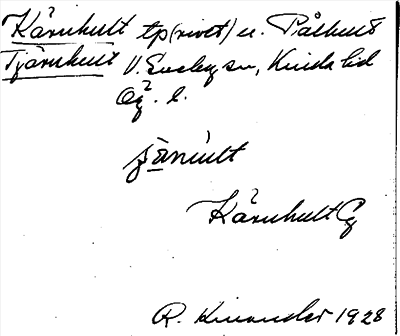 Kärnhult tp(rivet) u. Pålhult
Tjärnhult V. Eneby sn, Kinda hd
Ög. l.
Kärnhult Ög
R. Kinander 1928